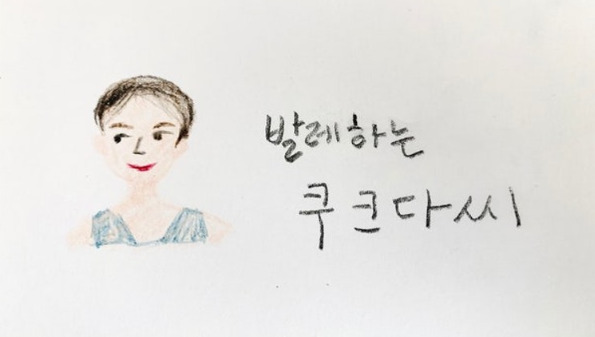 발레하는
쿠크다씨